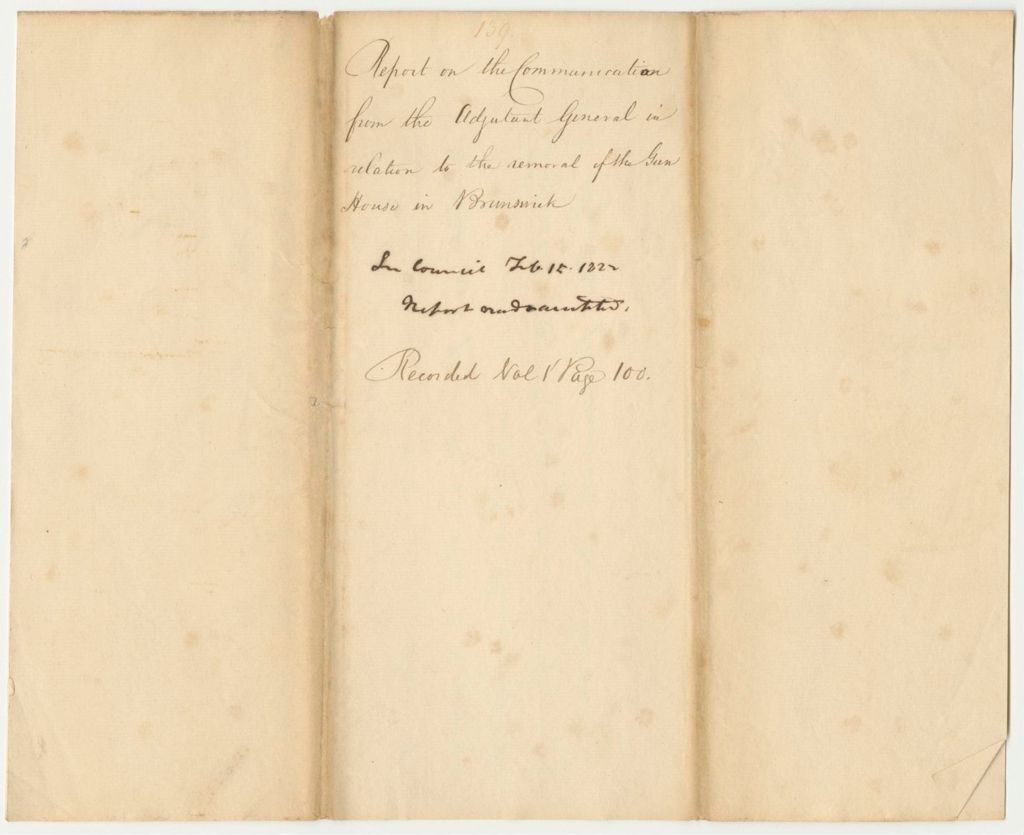 139.
Report on the Communication
from the Adjutant General in
relation to the removal of the Gun
House in Brunswick
In Council Feb. 15. 1822
Report read & accepted.
Recorded Vol 1 Page 100.